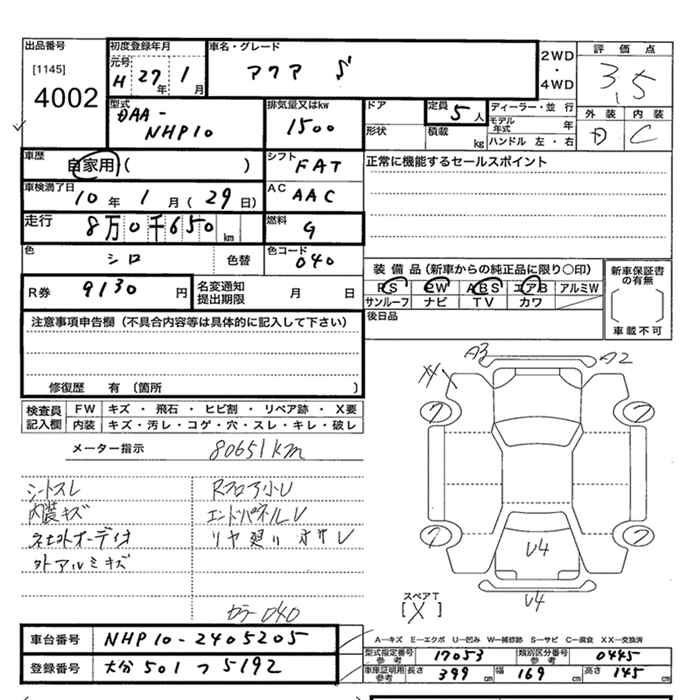 出品番号
[1145]
4002
初度登録年月
元号
H 27年 1月
車名・グレード
アクア S
2WD
・
4WD
評価点
3.5
外装 内装
D C
型式
DAA-
NHP10
排気量又はkw
1500
ドア
形状
定員
5人
積載 kg
ディーラー・並行
モデル年式 年
ハンドル 左・右
車歴
自家用 ( )
シフト
FAT
正常に機能するセールスポイント
車検満了日
10年 1月 (29日)
AC
AAC
走行
8万0千650 km
燃料
G
色
シロ
色替
色コード
040
R券 9130円
名変通知
提出期限 月 日
装備品 (新車からの純正品に限り○印)
PS PW ABS エアB アルミW
サンルーフ ナビ TV カワ
後日品
新車保証書
の有無
車載不可
注意事項申告欄 (不具合内容等は具体的に記入して下さい)
修復歴 有 (箇所 )
検査員
記入欄
FW キズ ・ 飛石 ・ ヒビ割 ・ リペア跡 ・ X要
内装 キズ・汚レ・コゲ・穴・スレ・キレ・破レ
メーター指示 80651km
シートスレ
内装キズ
社外オーディオ
外アルミキズ
Rフロア小U
エンドパネルU
リヤ廻り オサレ
カラー040
A3
A2
XX
U4
U4
スペアT
[X]
A―キズ E―エクボ U―凹み W―補修跡 S―サビ C―腐食 XX―交換済
車台番号 NHP10-2405205
登録番号 大分501つ5192
型式指定番号
参考
17053
類別区分番号
参考
0445
車庫証明用
参考
長さ 399 cm 幅 169 cm 高さ 145 cm